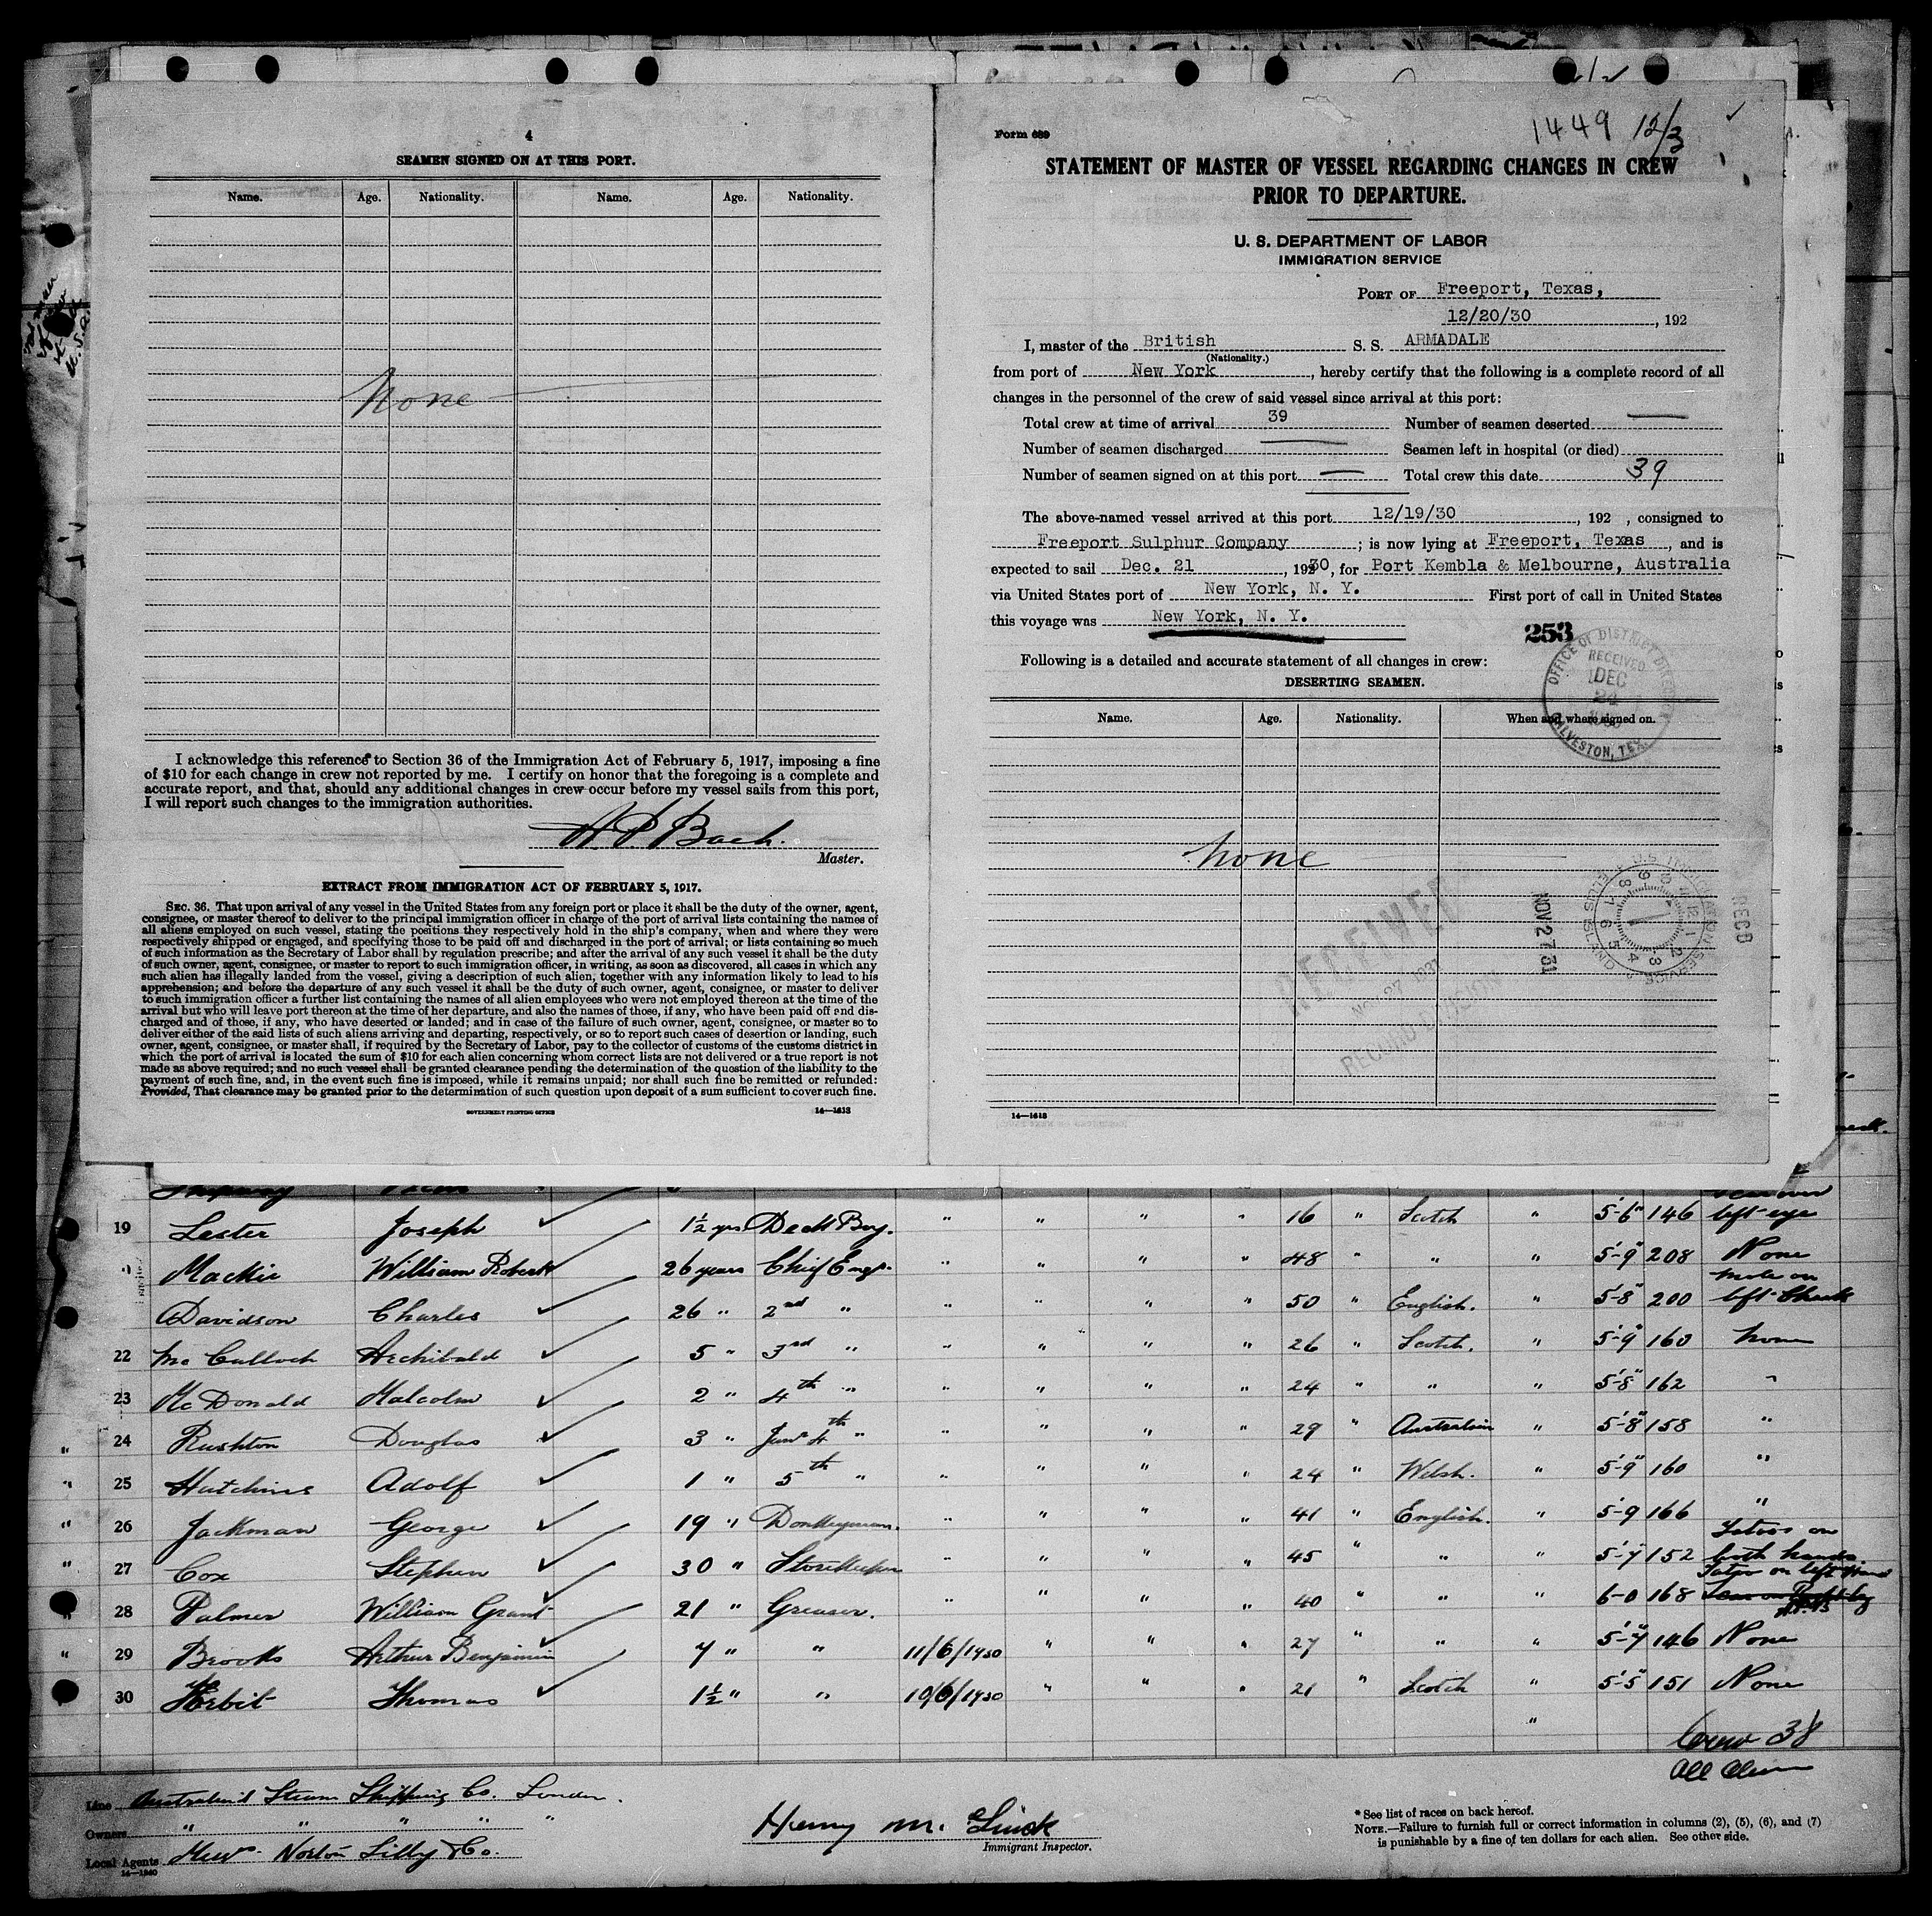 4
SEAMEN SIGNED ON AT THIS PORT.
Name. Age. Nationality. Name. Age. Nationality.
None
I acknowledge this reference to Section 36 of the Immigration Act of February 5, 1917, imposing a fine
of $10 for each change in crew not reported by me. I certify on honor that the foregoing is a complete and
accurate report, and that, should any additional changes in crew occur before my vessel sails from this port,
I will report such changes to the immigration authorities.
Master.
EXTRACT FROM IMMIGRATION ACT OF FEBRUARY 5, 1917.
SEC. 36. That upon arrival of any vessel in the United States from any foreign port or place it shall be the duty of the owner, agent,
consignee, or master thereof to deliver to the principal immigration officer in charge of the port of arrival lists containing the names of
all aliens employed on such vessel, stating the positions they respectively hold in the ship's company, when and where they were
respectively shipped or engaged, and specifying those to be paid off and discharged in the port of arrival; or lists containing so much
of such information as the Secretary of Labor shall by regulation prescribe; and after the arrival of any such vessel it shall be the duty
of such owner, agent, consignee, or master to report to such immigration officer, in writing, as soon as discovered, all cases in which any
such alien has illegally landed from the vessel, giving a description of such alien, together with any information likely to lead to his
apprehension; and before the departure of any such vessel it shall be the duty of such owner, agent, consignee, or master to deliver
to such immigration officer a further list containing the names of all alien employees who were not employed thereon at the time of the
arrival but who will leave port thereon at the time of her departure, and also the names of those, if any, who have been paid off and dis-
charged and of those, if any, who have deserted or landed; and in case of the failure of such owner, agent, consignee, or master so to
deliver either of the said lists of such aliens arriving and departing, respectively, or so to report such cases of desertion or landing, such
owner, agent, consignee, or master shall, if required by the Secretary of Labor, pay to the collector of customs of the customs district in
which the port of arrival is located the sum of $10 for each alien concerning whom correct lists are not delivered or a true report is not
made as above required; and no such vessel shall be granted clearance pending the determination of the question of the liability to the
payment of such fine, and, in the event such fine is imposed, while it remains unpaid; nor shall such fine be remitted or refunded:
Provided, That clearance may be granted prior to the determination of such question upon deposit of a sum sufficient to cover such fine.
GOVERNMENT PRINTING OFFICE 14—1613
Form 689
1449 12/3
STATEMENT OF MASTER OF VESSEL REGARDING CHANGES IN CREW
PRIOR TO DEPARTURE.
U. S. DEPARTMENT OF LABOR
IMMIGRATION SERVICE
PORT OF Freeport, Texas,
12/20/30, 192
I, master of the British S. S. ARMADALE
(Nationality.)
from port of New York, hereby certify that the following is a complete record of all
changes in the personnel of the crew of said vessel since arrival at this port:
Total crew at time of arrival 39 Number of seamen deserted —
Number of seamen discharged — Seamen left in hospital (or died)
Number of seamen signed on at this port — Total crew this date 39
The above-named vessel arrived at this port 12/19/30, 192 , consigned to
Freeport Sulphur Company; is now lying at Freeport, Texas, and is
expected to sail Dec. 21, 1930, for Port Kembla & Melbourne, Australia
via United States port of New York, N. Y. First port of call in United States
this voyage was New York, N. Y.
253
OFFICE OF DISTRICT DIRECTOR
RECEIVED
DEC
24
GALVESTON, TEX.
Following is a detailed and accurate statement of all changes in crew:
DESERTING SEAMEN.
Name. Age. Nationality. When and where signed on.
None
RECEIVED
NO. 27 1931
RECORD DIVISION
NOV 27 31
ELLIS ISLAND
REC'D
14—1613
19 Lester Joseph 1½ yrs Deck Boy. " " " " 16 " Scotch " 5'-6" 146 left eye
Mackie William Robert 26 years Chief Engr. " " " " 48 " " " 5'-9" 208 None
Davidson Charles 26 " 2nd " " " " " 50 " English. " 5'-8" 200 mole on left cheek
22 McCulloch Archibald 5 " 3rd " " " " " 26 " Scotch. " 5'-9" 160 none
23 McDonald Malcolm 2 " 4th " " " " " 24 " " " 5'-8" 162 "
" 24 Rushton Douglas 3 " Junr 4th " " " " " 29 " Australian " 5'-8" 158 "
" 25 Hutchins Adolf 1 " 5th " " " " " 24 " Welsh. " 5'-9" 160 "
" 26 Jackman George 19 " Donkeyman. " " " " 41 " English. " 5'-9 166 "
" 27 Cox Stephen 30 " Storekeeper " " " " 45 " " " 5'-7 152 Tatoos on both hands
" 28 Palmer William Grant 21 " Greaser. " " " " 40 " " " 6-0 168 Tatoo on left Hand
" 29 Brooks Arthur Benjamin 7 " " 11/6/1930 " " " 27 " " " 5'-7" 146 None
30 Thomas 1½ " " 10/6/1930 " " " 21 " Scotch " 5'-5" 151 None
"
Crew 38
Line Australind Steam Shipping Co. London.
Owners " " " " "
Local Agents Messrs. Norton Lilly & Co.
14—1240
Henry M.
Immigrant Inspector.
* See list of races on back hereof.
NOTE.—Failure to furnish full or correct information in columns (2), (5), (6), and (7)
is punishable by a fine of ten dollars for each alien. See other side.